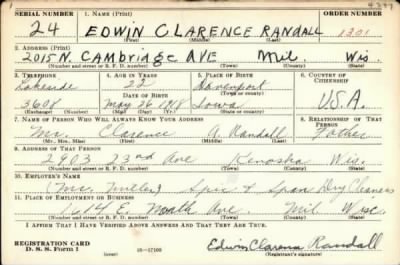 SERIAL NUMBER 1. NAME (Print) ORDER NUMBER
24 EDWIN CLARENCE RANDALL 1301
(First) (Middle) (Last)
2. ADDRESS (Print)
2015 N. CAMBRIDGE AVE Mil. Wis.
(Number and street or R. F. D. number) (Town) (County) (State)
3. TELEPHONE 4. AGE IN YEARS 5. PLACE OF BIRTH 6. COUNTRY OF CITIZENSHIP
Lakeside 22 Davenport
DATE OF BIRTH (Town or county)
3608 May 26 1918 Iowa U.S.A.
(Exchange) (Number) (Mo.) (Day) (Yr.) (State or country)
7. NAME OF PERSON WHO WILL ALWAYS KNOW YOUR ADDRESS 8. RELATIONSHIP OF THAT PERSON
Mr. Clarence A. Randall Father
(Mr., Mrs., Miss) (First) (Middle) (Last)
9. ADDRESS OF THAT PERSON
2903 23rd Ave Kenosha Wis.
(Number and street or R. F. D. number) (Town) (County) (State)
10. EMPLOYER'S NAME
Spic & Span Dry Cleaners
11. PLACE OF EMPLOYMENT OR BUSINESS
1614 E. North Ave. Mil Wisc.
(Number and street or R. F. D. number) (Town) (County) (State)
I AFFIRM THAT I HAVE VERIFIED ABOVE ANSWERS AND THAT THEY ARE TRUE.
REGISTRATION CARD
D. S. S. Form 1 (over) Edwin Clarence Randall
(Registrant's signature)